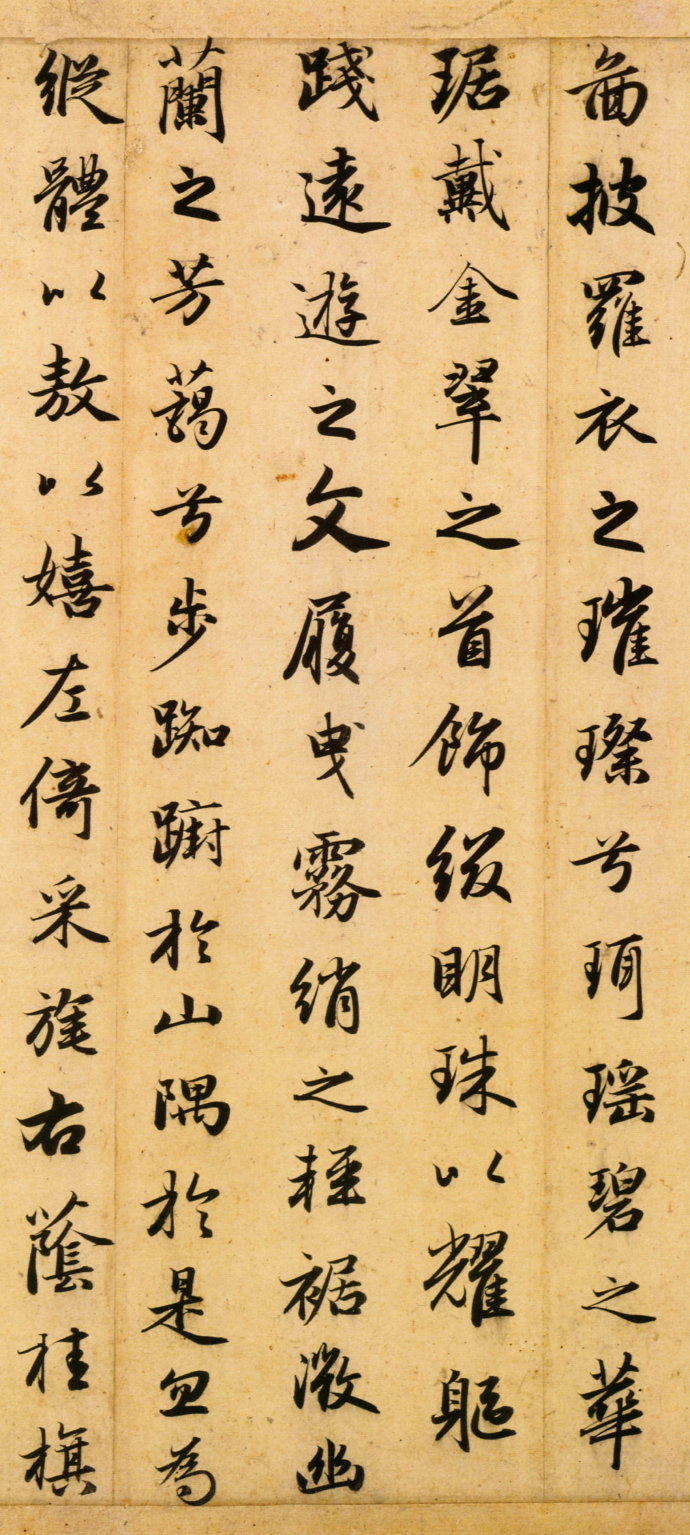 啚披羅衣之璀璨兮珥瑶碧之華
琚戴金翠之首飾綴明珠以耀軀
踐遠遊之文履曳霧綃之輕裾微幽
蘭之芳藹兮步踟躕於山隅於是忽為
縱體以敖以嬉左倚采旄右蔭桂旗